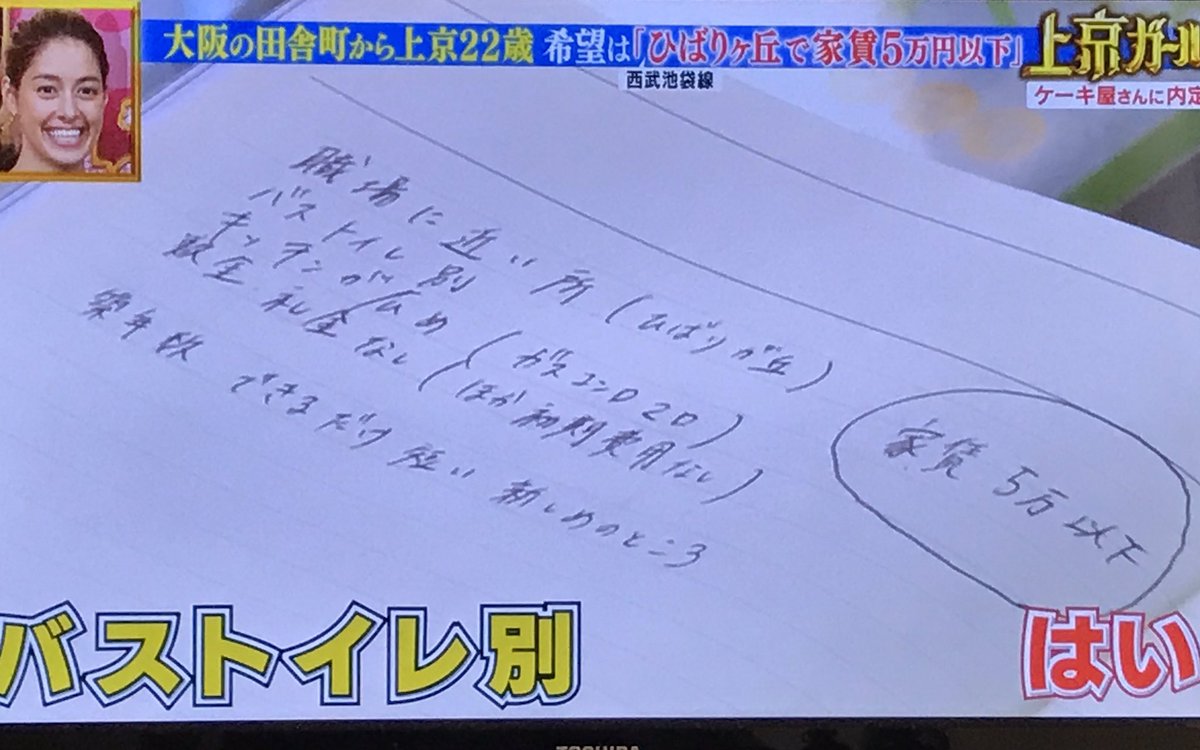 大阪の田舎町から上京22歳 希望は「ひばりヶ丘で家賃5万円以下」
西武池袋線
上京ガール
ケーキ屋さんに内定
職場に近い所(ひばりが丘)
バストイレ別
キッチンが広め(ガスコンロ2口)
敷金 礼金なし(ほか初期費用なし)
築年数 できるだけ短い 新しめのところ
家賃5万以下
バストイレ別
はい
TOSHIBA